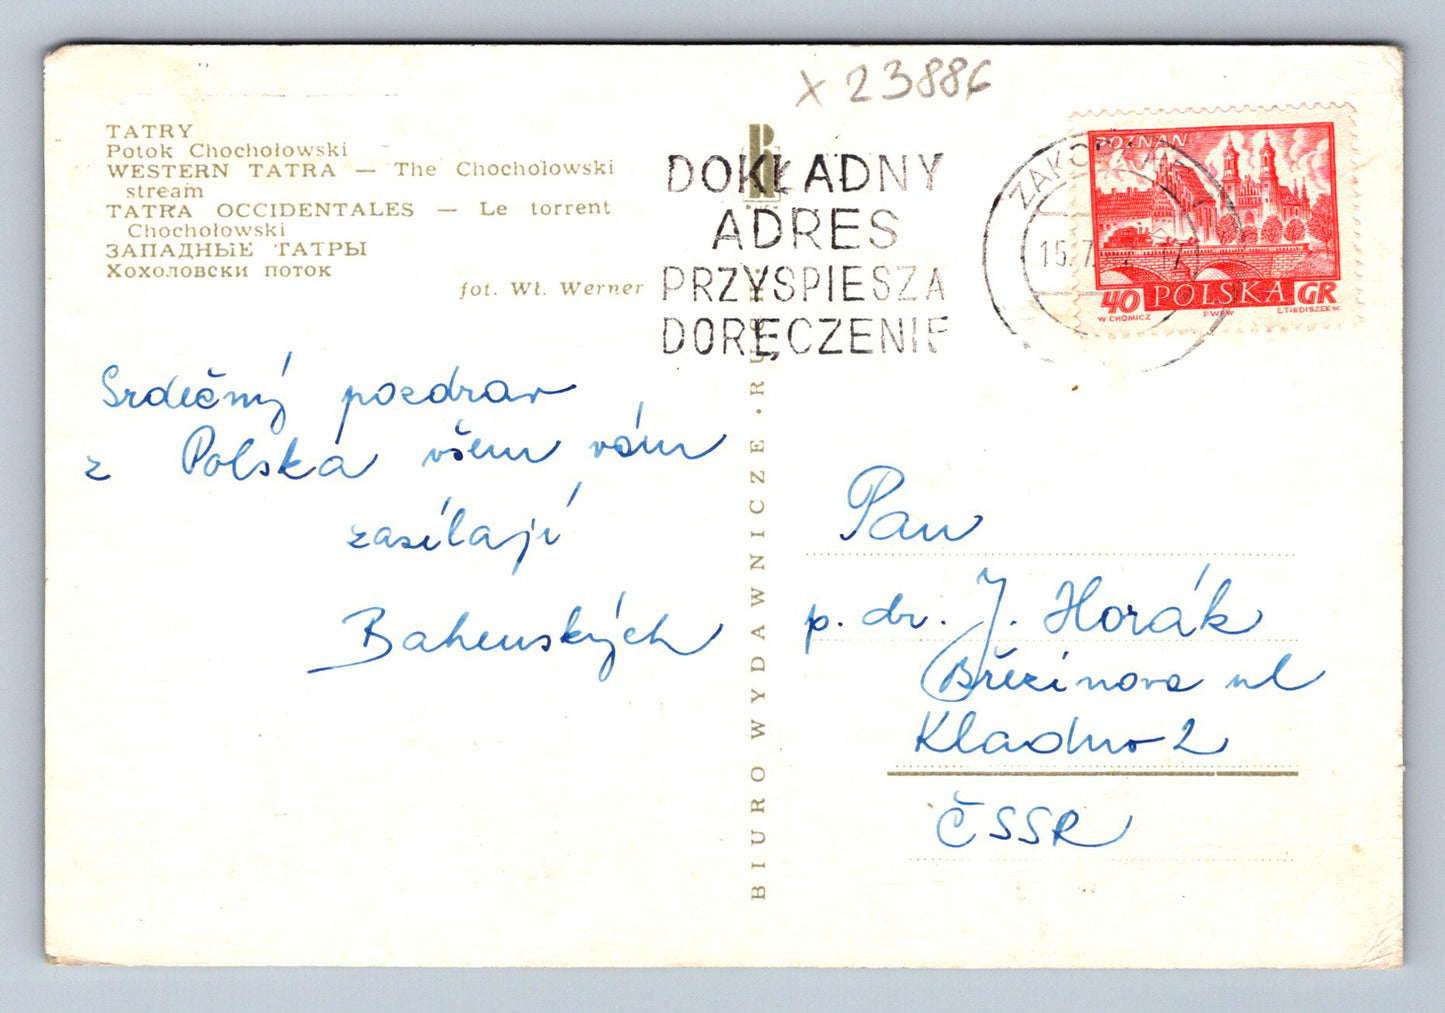 x 23886
TATRY
Potok Chochołowski
WESTERN TATRA — The Chochołowski
stream
TATRA OCCIDENTALES — Le torrent
Chochołowski
ЗАПАДНЫЕ ТАТРЫ
Хохоловски поток
fot. Wł. Werner
DOKŁADNY
ADRES
PRZYSPIESZA
DORĘCZENIE
POZNAŃ
40 POLSKA GR
W. CHOMICZ PWPW
15.7
Srdečný pozdrav
z Polska všem vám
zasílají
BIURO WYDAWNICZE • RUCH
Pan
p. dr. J. Horák
Březinova ul
Kladno 2
ČSSR